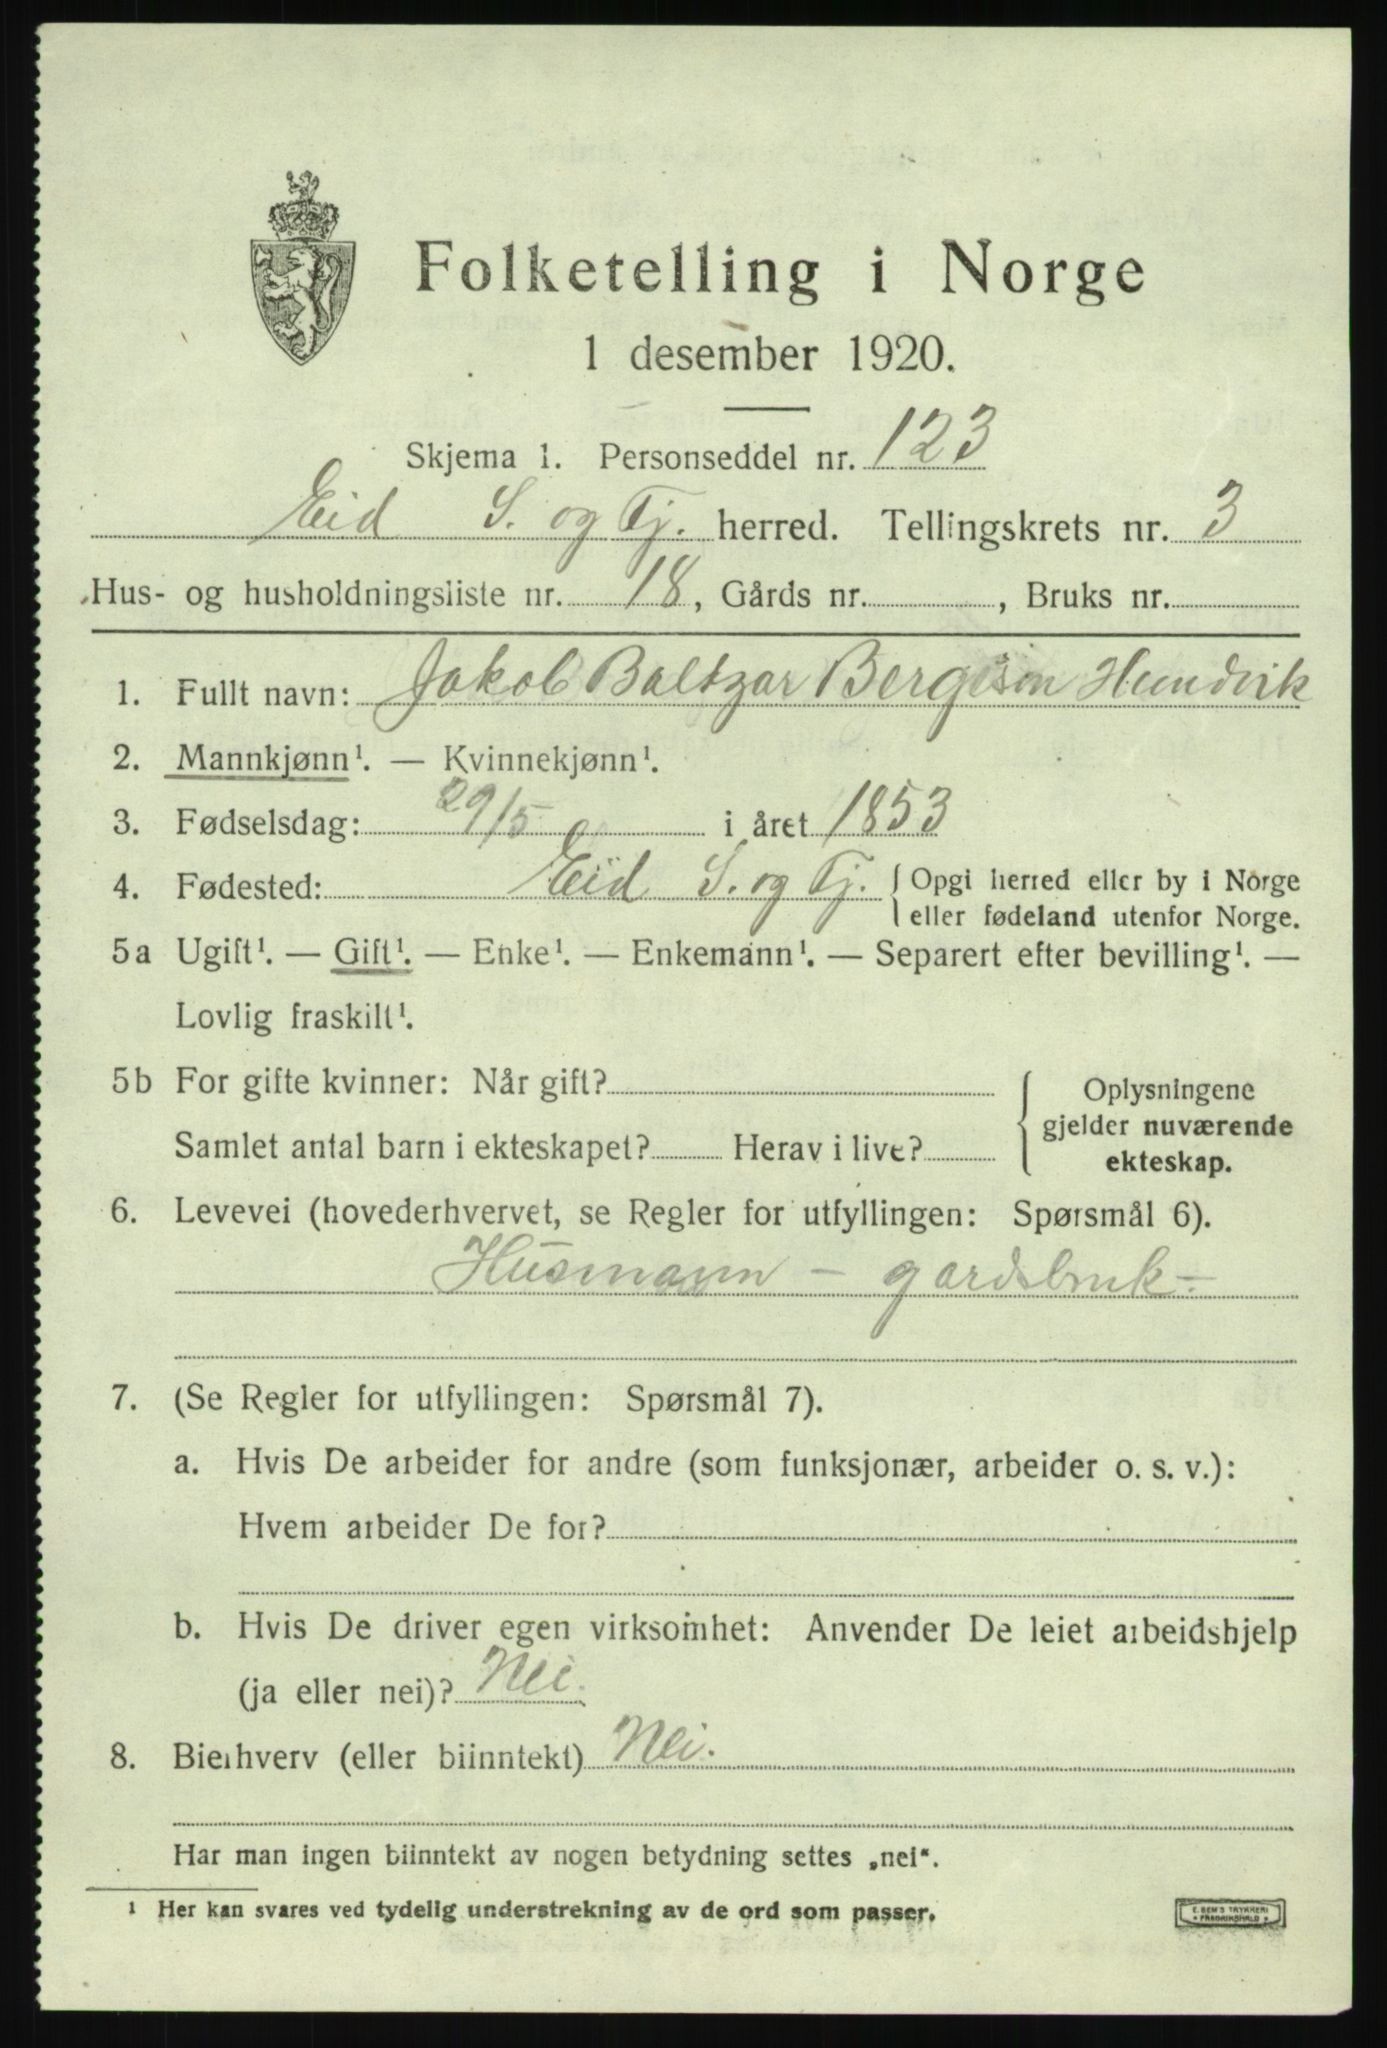 Folketelling i Norge
1 desember 1920.
Skjema 1. Personseddel nr. 123
Eid S. og Fj. herred. Tellingskrets nr. 3
Hus- og husholdningsliste nr. 18, Gårds nr. , Bruks nr.
1. Fullt navn: Jakob Baltzar Bergeson Hundvik
2. Mannkjønn¹. — Kvinnekjønn¹.
3. Fødselsdag: 29/5 i året 1853
4. Fødested: Eid S. og Fj. { Opgi herred eller by i Norge
eller fødeland utenfor Norge.
5a Ugift¹. — Gift¹. — Enke¹. — Enkemann¹. — Separert efter bevilling¹. —
Lovlig fraskilt¹.
5b For gifte kvinner: Når gift?
Samlet antal barn i ekteskapet? Herav i live?
Oplysningene
gjelder nuværende
ekteskap.
6. Levevei (hovederhvervet, se Regler for utfyllingen: Spørsmål 6).
Husmann – gardsbruk –
7. (Se Regler for utfyllingen: Spørsmål 7).
a. Hvis De arbeider for andre (som funksjonær, arbeider o. s. v.):
Hvem arbeider De for?
b. Hvis De driver egen virksomhet: Anvender De leiet arbeidshjelp
(ja eller nei)? Nei.
8. Bierhverv (eller biinntekt) Nei.
Har man ingen biinntekt av nogen betydning settes „nei“.
¹ Her kan svares ved tydelig understrekning av de ord som passer.
E. SEM'S TRYKKERI
FREDRIKSHALD